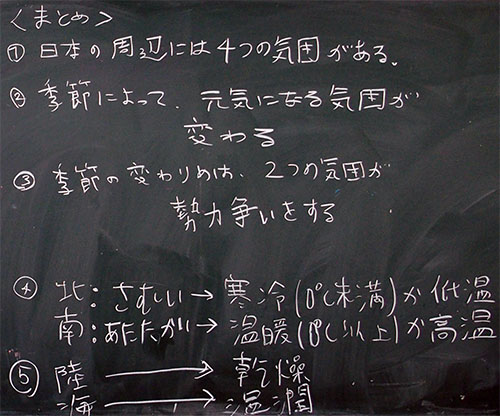 <まとめ>
① 日本の周辺には4つの気団がある。
② 季節によって、元気になる気団が
変わる
③ 季節の変わりめは、2つの気団が
勢力争いをする
④ 北:さむい→寒冷(0℃未満)か低温
南:あたたかい→温暖(0℃以上)か高温
⑤ 陸→乾燥
海→湿潤